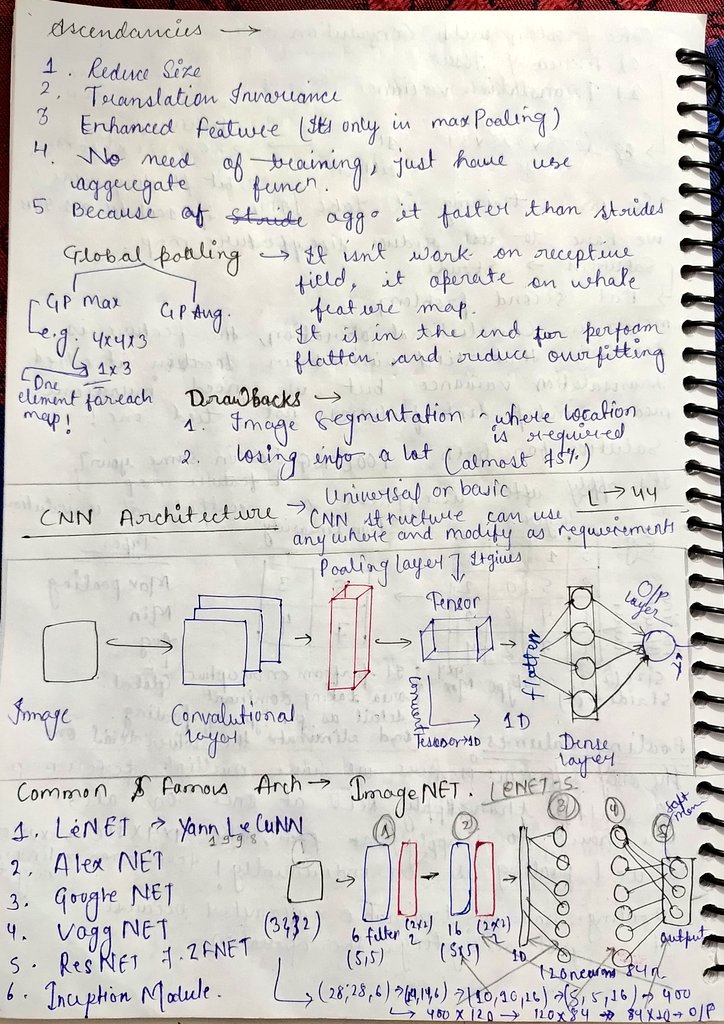 Ascendancies →
1. Reduce Size
2. Translation Invariance
3 Enhanced feature (Its only in maxPooling)
4. No need of training, just have use
aggregate funcn.
5 Because of stride agg. it faster than strides
Global pooling → It isn't work on receptive
field, it operate on whole
feature map.
It is in the end for perfoam
flatten and reduce overfitting
GP Max
GP Avg.
e.g. 4x4x3
1x3
One
element for each
map!
Drawbacks →
1. Image Segmentation - where location
is required
2. losing info a lot (almost 75%)
CNN Architecture → Universal or basic
CNN structure can use
any where and modify as requirements
L → 44
Pooling layer
It gives
Tensor
O/P
layer
Image
Convalutional
layer
Convert
1D
flatten
Dense
layer
Common & Famous Arch → ImageNET. LENET-5
1. LeNET → Yann LeCuNN
1998
2. Alex NET
3. Google NET
4. Vagg NET
5. ResNET 7. ZFNET
6. Inception Module.
1
2
3
4
5
6 filter
(5,5)
(2x2)
2
16
(5,5)
(2x2)
2
1D
120 neurons
84 n
output
(28,28,6) → (14,14,6) → (10,10,16) → (5,5,16) → 400
→ 400 x 120 → 120 x 84 → 84x10 → O/P